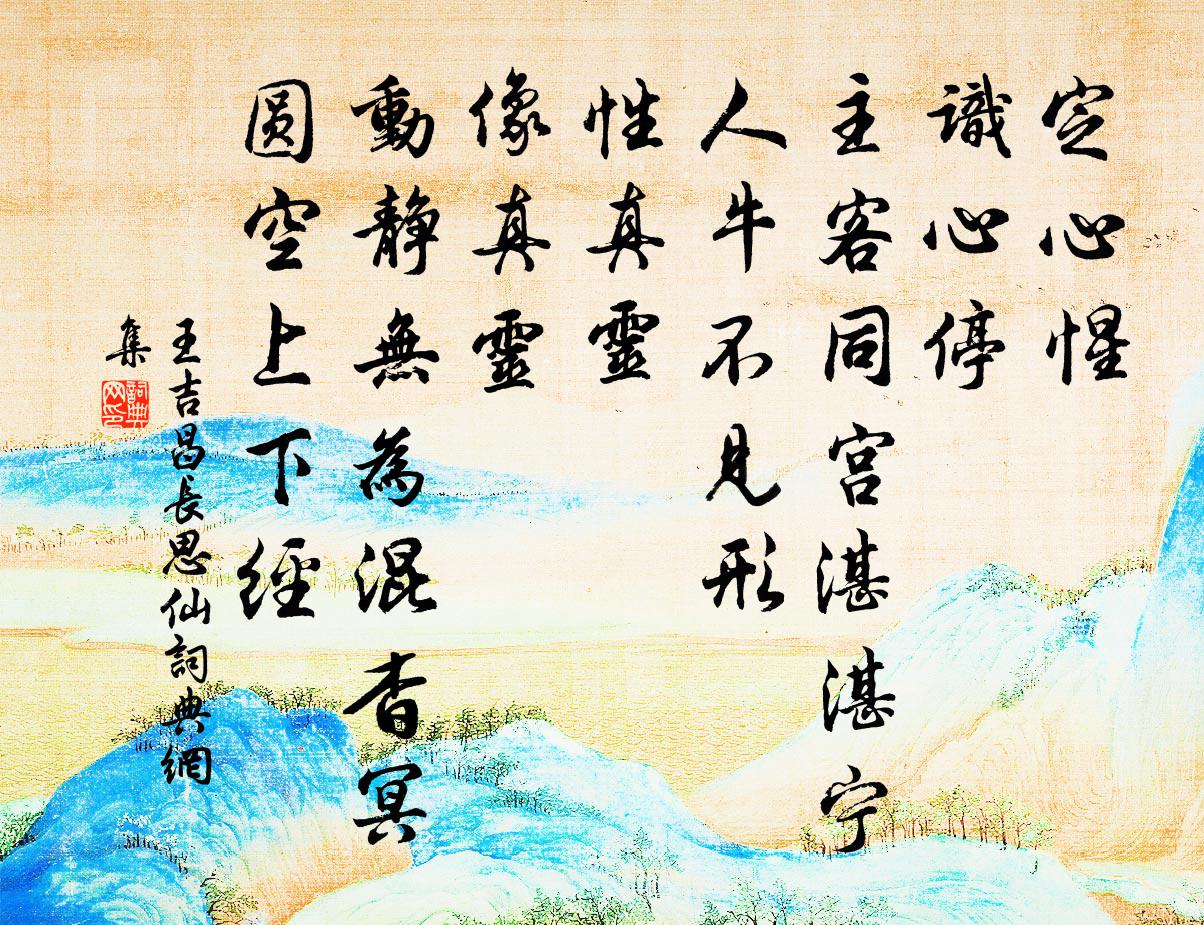 定心惺
識心停
主客同宫湛湛宁
人牛不見形
性真靈
像真靈
動静無為混杳冥
圆空上下經
王吉昌長思仙詞典網
集
詞典
网印